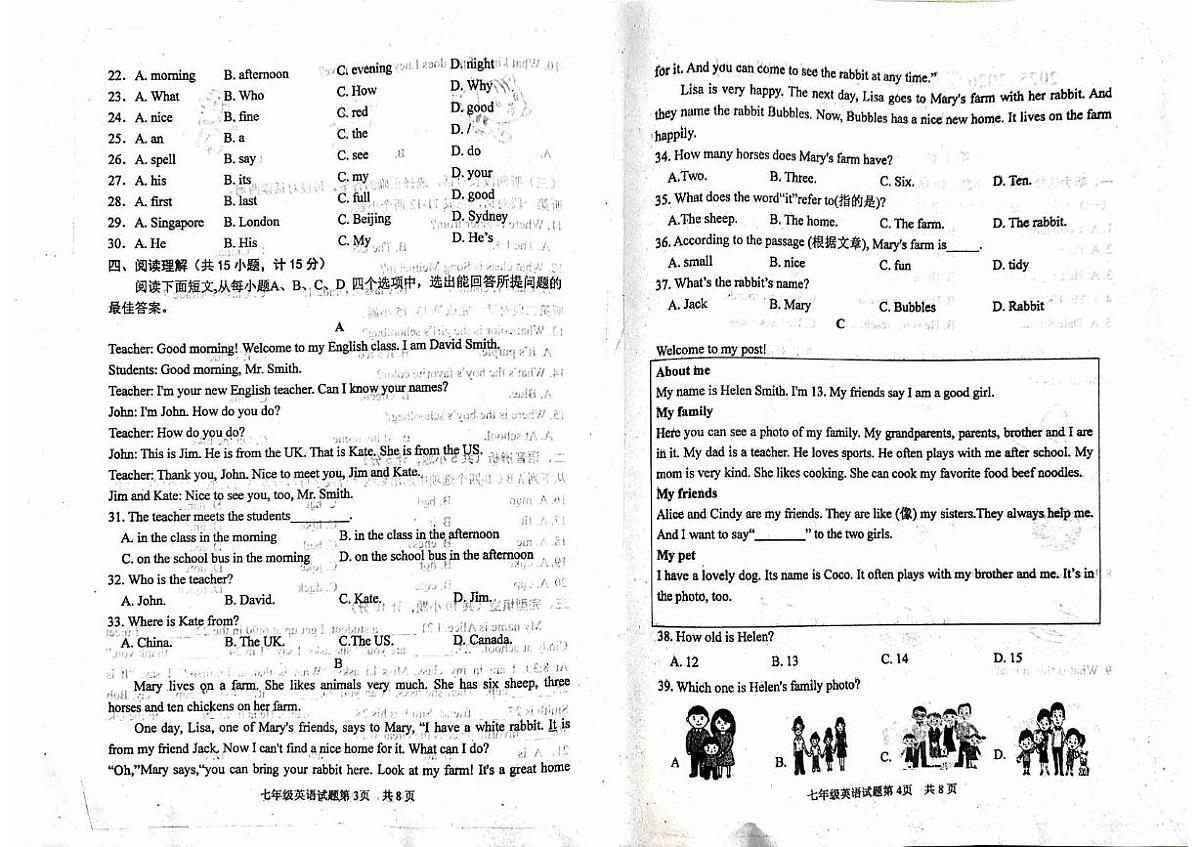 22. A. morning B. afternoon C. evening D. night
23. A. What B. Who C. How D. Why
24. A. nice B. fine C. red D. good
25. A. an B. a C. the D. /
26. A. spell B. say C. see D. do
27. A. his B. its C. my D. your
28. A. first B. last C. full D. good
29. A. Singapore B. London C. Beijing D. Sydney
30. A. He B. His C. My D. He's
四、阅读理解（共 15 小题，计 15 分）
阅读下面短文,从每小题A、B、C、D 四个选项中，选出能回答所提问题的
最佳答案。
A
Teacher: Good morning! Welcome to my English class. I am David Smith.
Students: Good morning, Mr. Smith.
Teacher: I'm your new English teacher. Can I know your names?
John: I'm John. How do you do?
Teacher: How do you do?
John: This is Jim. He is from the UK. That is Kate. She is from the US.
Teacher: Thank you, John. Nice to meet you, Jim and Kate.
Jim and Kate: Nice to see you, too, Mr. Smith.
31. The teacher meets the students_________.
A. in the class in the morning B. in the class in the afternoon
C. on the school bus in the morning D. on the school bus in the afternoon
32. Who is the teacher?
A. John. B. David. C. Kate. D. Jim.
33. Where is Kate from?
A. China. B. The UK. C.The US. D. Canada.
B
Mary lives on a farm. She likes animals very much. She has six sheep, three
horses and ten chickens on her farm.
One day, Lisa, one of Mary's friends, says to Mary, “I have a white rabbit. It is
from my friend Jack. Now I can't find a nice home for it. What can I do?
“Oh,”Mary says,“you can bring your rabbit here. Look at my farm! It's a great home
七年级英语试题第 3页 共 8页
for it. And you can come to see the rabbit at any time.”
Lisa is very happy. The next day, Lisa goes to Mary's farm with her rabbit. And
they name the rabbit Bubbles. Now, Bubbles has a nice new home. It lives on the farm
happily.
34. How many horses does Mary's farm have?
A.Two. B. Three. C. Six. D. Ten.
35. What does the word“it”refer to(指的是)?
A.The sheep. B. The home. C. The farm. D. The rabbit.
36. According to the passage (根据文章), Mary's farm is_____.
A. small B. nice C. fun D. tidy
37. What's the rabbit's name?
A. Jack B. Mary C. Bubbles D. Rabbit
C
Welcome to my post!
About me
My name is Helen Smith. I'm 13. My friends say I am a good girl.
My family
Here you can see a photo of my family. My grandparents, parents, brother and I are
in it. My dad is a teacher. He loves sports. He often plays with me after school. My
mom is very kind. She likes cooking. She can cook my favorite food beef noodles.
My friends
Alice and Cindy are my friends. They are like (像) my sisters.They always help me.
And I want to say“________” to the two girls.
My pet
I have a lovely dog. Its name is Coco. It often plays with my brother and me. It's in
the photo, too.
38. How old is Helen?
A. 12 B. 13 C. 14 D. 15
39. Which one is Helen's family photo?
A B. C. D.
七年级英语试题第 4页 共 8页